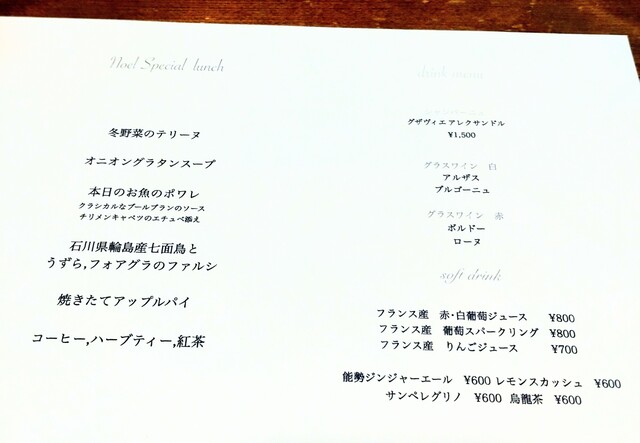 Noel Special lunch
冬野菜のテリーヌ
オニオングラタンスープ
本日のお魚のポワレ
クラシカルなブールブランのソース
チリメンキャベツのエチュベ添え
石川県輪島産七面鳥と
うずら,フォアグラのファルシ
焼きたてアップルパイ
コーヒー,ハーブティー,紅茶
drink menu
グザヴィエ アレクサンドル
¥1,500
グラスワイン 白
アルザス
ブルゴーニュ
グラスワイン 赤
ボルドー
ローヌ
soft drink
フランス産 赤・白葡萄ジュース ¥800
フランス産 葡萄スパークリング ¥800
フランス産 りんごジュース ¥700
能勢ジンジャーエール ¥600 レモンスカッシュ ¥600
サンペレグリノ ¥600 烏龍茶 ¥600